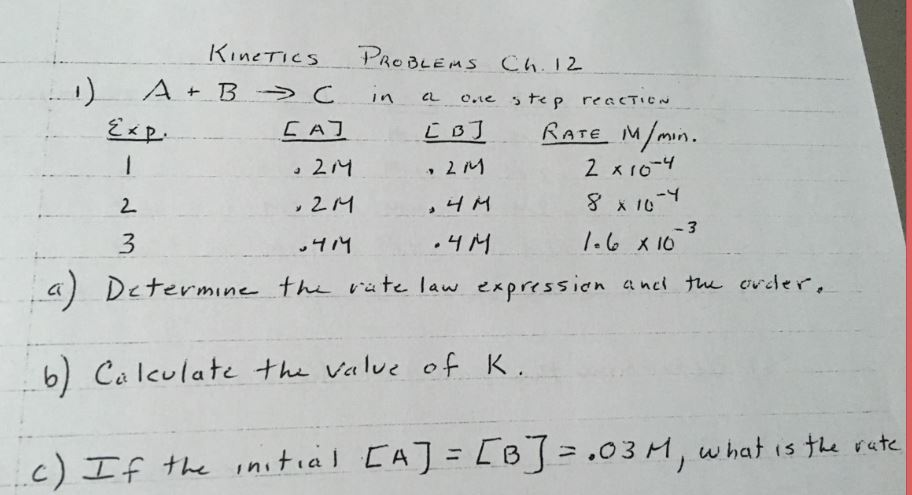 Kinetics Problems Ch. 12
1) A + B → C in a one step reaction
Exp. [A] [B] RATE M/min.
1 .2M .2M 2 x 10⁻⁴
2 .2M .4M 8 x 10⁻⁴
3 .4M .4M 1.6 x 10⁻³
a) Determine the rate law expression and the order.
b) Calculate the value of K.
c) If the initial [A] = [B] = .03 M, what is the rate